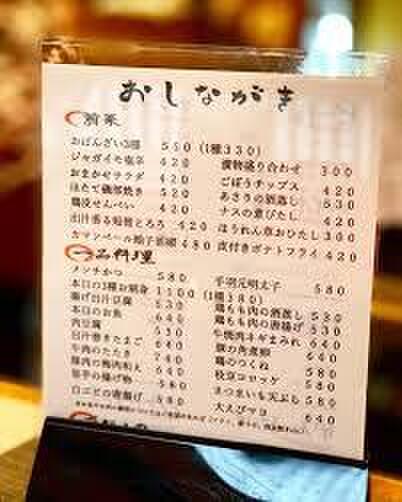 おしながき
前菜
おばんざい3種 550 (1種330)
ジャガイモ塩辛 420
おまかせサラダ 420
ほたて磯部焼き 520
鶏皮せんべい 420
出汁香る短冊とろろ 420
カマンベール 480
漬物盛り合わせ 300
ごぼうチップス 420
あさりの酒蒸し 530
ナスの煮びたし 420
ほうれん草おひたし 300
皮付きポテトフライ 420
一品料理
メンチかつ 580
本日の3種お刺身 1100 (1種380)
揚げ出汁豆腐 530
本日のお魚 640
肉豆腐 530
出汁巻きたまご 640
牛肉のたたき 740
豚肉の梅肉和え 640
の揚げ物 580
白エビの唐揚げ 580
手羽元明太子 580
鶏もも肉の酒蒸し 530
鶏もも肉の唐揚げ 530
焼肉ネギまみれ 640
豚の角煮 640
鶏のつくね 580
枝豆コロッケ 580
まつまいも天ぷら 580
大えびマヨ 640